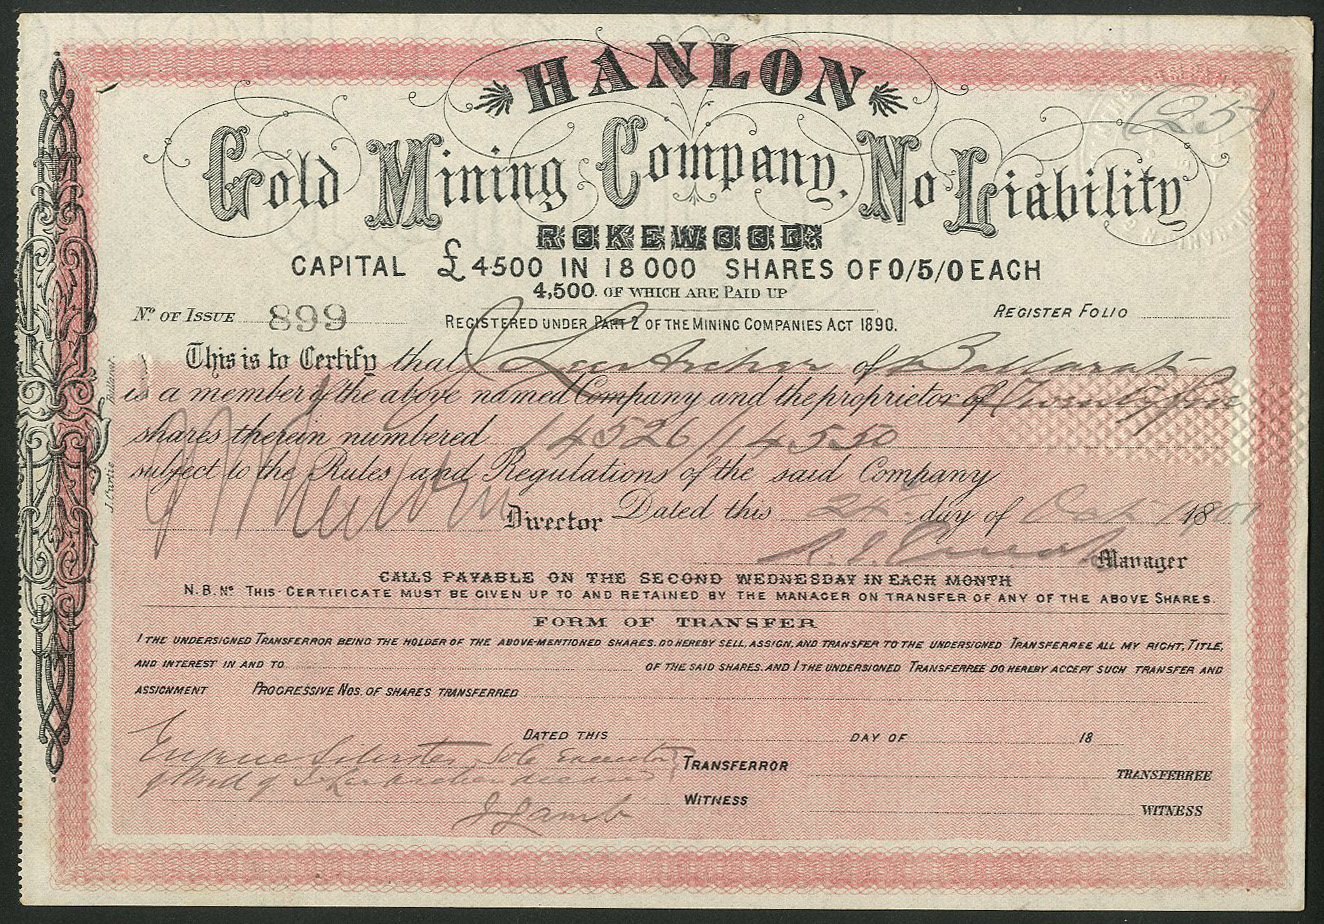 HANLON
(25)
Gold Mining Company, No Liability
ROKEWOOD.
CAPITAL £4500 IN 18000 SHARES OF 0/5/0 EACH
4,500. OF WHICH ARE PAID UP
No. OF ISSUE 899 REGISTERED UNDER PART 2 OF THE MINING COMPANIES ACT 1890. REGISTER FOLIO
This is to Certify that Lee Archer of Ballarat
is a member of the above named Company and the proprietor of Twenty five
shares therein numbered 14526/14550
subject to the Rules and Regulations of the said Company
Director Dated this 24 day of Oct 1801
Manager
J. Curtis Ballarat.
CALLS PAYABLE ON THE SECOND WEDNESDAY IN EACH MONTH
N.B. No THIS CERTIFICATE MUST BE GIVEN UP TO AND RETAINED BY THE MANAGER ON TRANSFER OF ANY OF THE ABOVE SHARES.
FORM OF TRANSFER
I THE UNDERSIGNED TRANSFERROR BEING THE HOLDER OF THE ABOVE-MENTIONED SHARES. DO HEREBY SELL, ASSIGN, AND TRANSFER TO THE UNDERSIGNED TRANSFERREE ALL MY RIGHT, TITLE,
AND INTEREST IN AND TO OF THE SAID SHARES. AND I THE UNDERSIGNED TRANSFERREE DO HEREBY ACCEPT SUCH TRANSFER AND
ASSIGNMENT PROGRESSIVE NOS. OF SHARES TRANSFERRED
DATED THIS DAY OF 18
Sole Executor TRANSFERROR TRANSFERREE
deceased
J Lamb WITNESS WITNESS